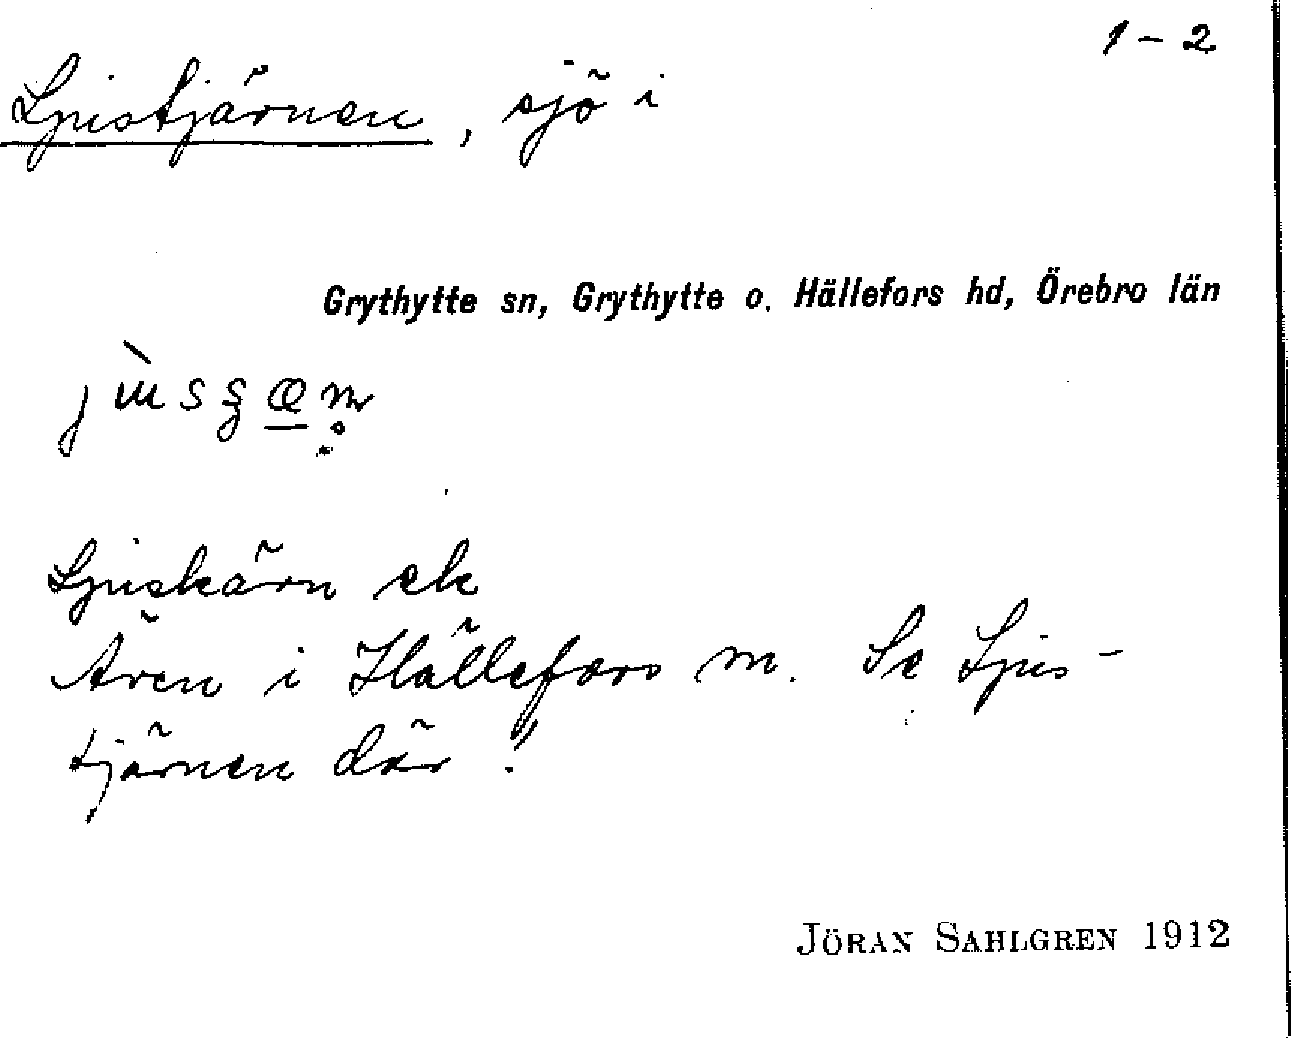 1-2
Ljustjärnen, sjö i
Grythytte sn, Grythytte o. Hällefors hd, Örebro län
Ljuskärn ek
Ären i Hällefors sn. Se Ljus-
tjärnen där!
JÖRAN SAHLGREN 1912